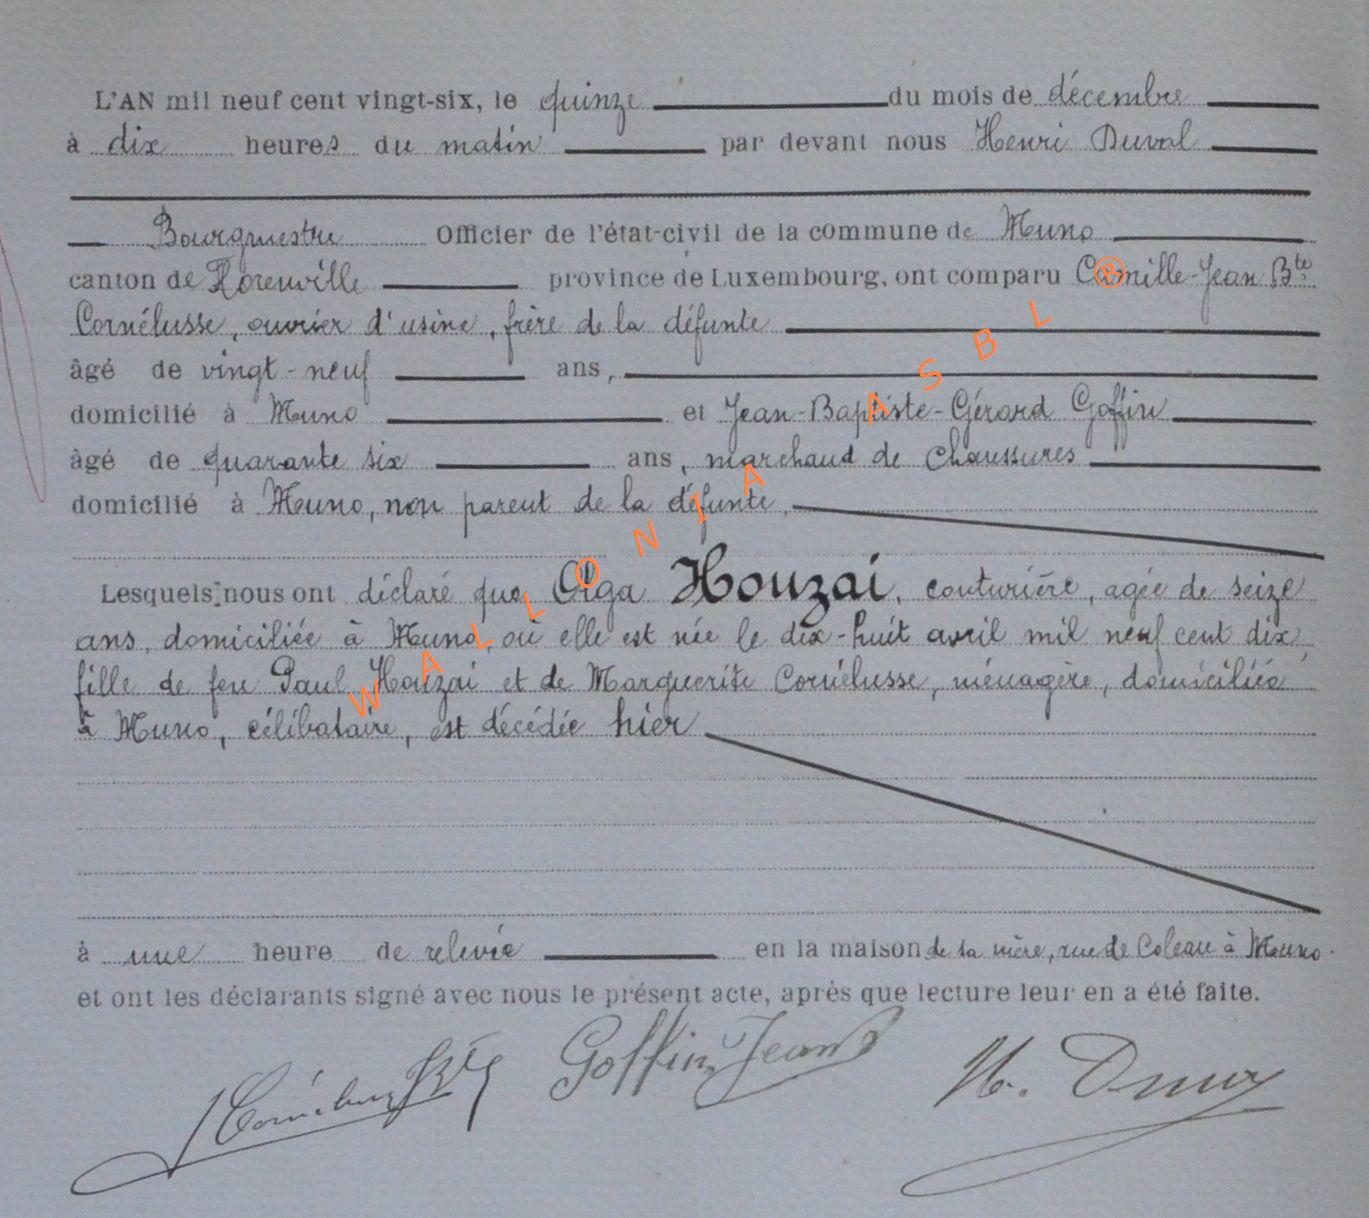 L'AN mil neuf cent vingt-six, le quinze du mois de décembre
à dix heures du matin par devant nous Henri Duval
Bourgmestre Officier de l'état-civil de la commune de Muno
canton de Florenville province de Luxembourg, ont comparu Camille-Jean Bte
Cornélusse, ouvrier d'usine, frère de la défunte
âgé de vingt-neuf ans,
domicilié à Muno et Jean-Baptiste-Gérard Goffin
âgé de quarante six ans, marchand de chaussures
domicilié à Muno, non parent de la défunte,
Lesquels nous ont déclaré que Olga Houzai, couturière, agée de seize
ans, domiciliée à Muno, où elle est née le dix-huit avril mil neuf cent dix,
fille de feu Paul Houzai et de Marguerite Cornélusse, ménagère, domiciliée
à Muno, célibataire, est décédée hier
à une heure de relevée en la maison de sa mère, rue de Coleau à Muno.
et ont les déclarants signé avec nous le présent acte, après que lecture leur en a été faite.
Goffin Jean B
H.
WALLONIA ASBL ®